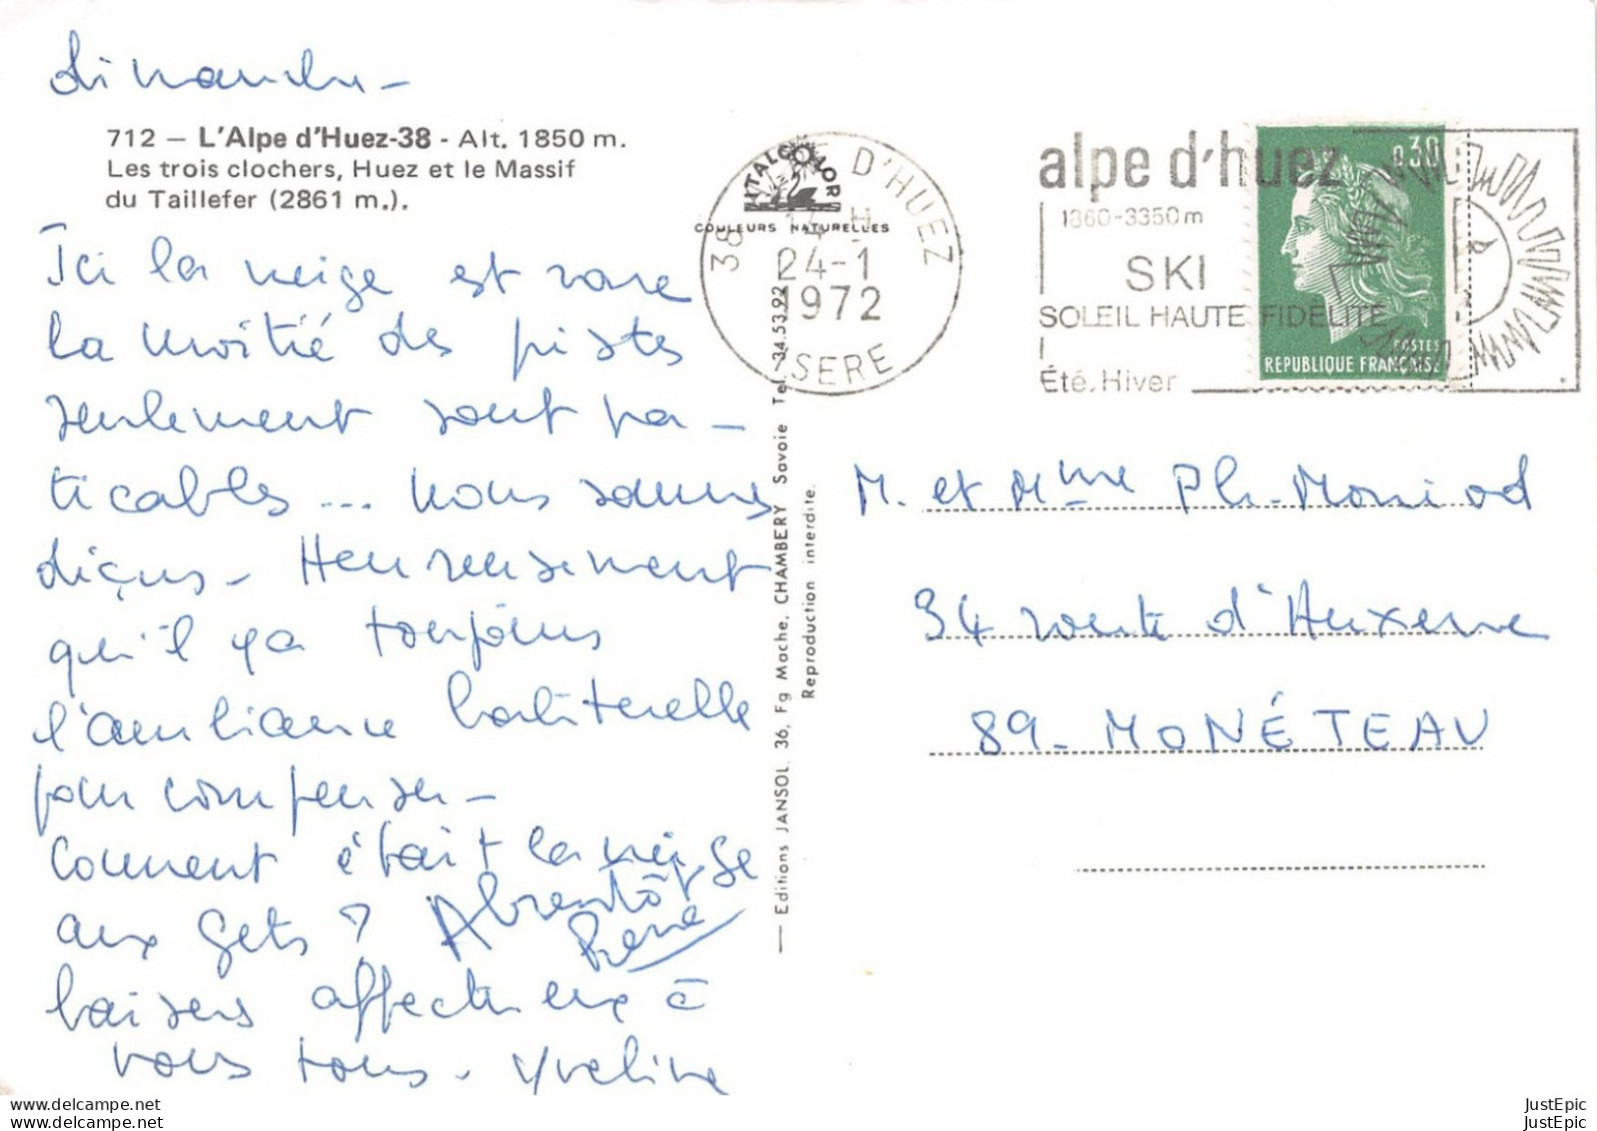 dimanche -
712 — L'Alpe d'Huez-38 - Alt. 1850 m.
Les trois clochers, Huez et le Massif
du Taillefer (2861 m.).
Ici la neige est rare
la moitié des pistes
seulement sont pra-
ticables ... nous sommes
déçus - Heureusement
qu'il y a toujours
l'ambiance habituelle
pour compenser -
Comment était la neige
aux Gets ? A bientôt
Pierre
baisers affectueux à
vous tous - Yveline
ITALCOLOR
COULEURS NATURELLES
38 D'HUEZ
24-1
1972
ISERE
alpe d'huez
1860-3350m
SKI
SOLEIL HAUTE FIDELITE
Été. Hiver
0,30
POSTES
REPUBLIQUE FRANÇAISE
M. et Mme Ph. Moniod
34 route d'Auxerre
89 - MONÉTEAU
— Editions JANSOL, 36, Fg Mache, CHAMBERY Savoie Tel. 34.53.92
Reproduction interdite.
https://www.delcampe.net
https://www.delcampe.net
JustEpic
JustEpic